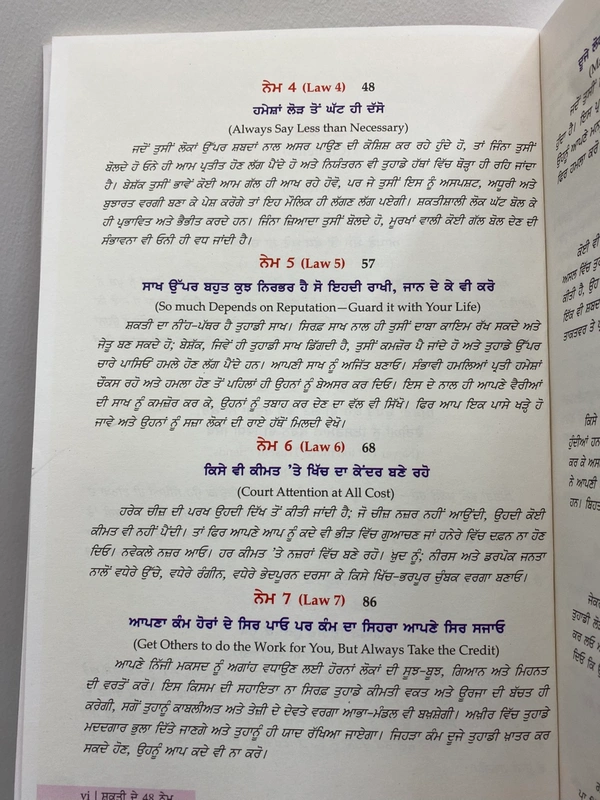 ਨੇਮ 4 (Law 4) 48
ਹਮੇਸ਼ਾਂ ਲੋੜ ਤੋਂ ਘੱਟ ਹੀ ਦੱਸੋ
(Always Say Less than Necessary)
ਜਦੋਂ ਤੁਸੀਂ ਲੋਕਾਂ ਉੱਪਰ ਸ਼ਬਦਾਂ ਨਾਲ ਅਸਰ ਪਾਉਣ ਦੀ ਕੋਸ਼ਿਸ਼ ਕਰ ਰਹੇ ਹੁੰਦੇ ਹੋ, ਤਾਂ ਜਿੰਨਾ ਤੁਸੀਂ
ਬੋਲਦੇ ਹੋ ਓਨੇ ਹੀ ਆਮ ਪ੍ਰਤੀਤ ਹੋਣ ਲੱਗ ਪੈਂਦੇ ਹੋ ਅਤੇ ਨਿਯੰਤਰਨ ਵੀ ਤੁਹਾਡੇ ਹੱਥਾਂ ਵਿੱਚ ਥੋੜ੍ਹਾ ਹੀ ਰਹਿ ਜਾਂਦਾ
ਹੈ। ਬੇਸ਼ੱਕ ਤੁਸੀਂ ਭਾਵੇਂ ਕੋਈ ਆਮ ਗੱਲ ਹੀ ਆਖ ਰਹੇ ਹੋਵੋ, ਪਰ ਜੇ ਤੁਸੀਂ ਇਸ ਨੂੰ ਅਸਪਸ਼ਟ, ਅਧੂਰੀ ਅਤੇ
ਬੁਝਾਰਤ ਵਰਗੀ ਬਣਾ ਕੇ ਪੇਸ਼ ਕਰੋਗੇ ਤਾਂ ਇਹ ਮੌਲਿਕ ਹੀ ਲੱਗਣ ਲੱਗ ਪਏਗੀ। ਸ਼ਕਤੀਸ਼ਾਲੀ ਲੋਕ ਘੱਟ ਬੋਲ ਕੇ
ਹੀ ਪ੍ਰਭਾਵਿਤ ਅਤੇ ਭੈਭੀਤ ਕਰਦੇ ਹਨ। ਜਿੰਨਾ ਜ਼ਿਆਦਾ ਤੁਸੀਂ ਬੋਲਦੇ ਹੋ, ਮੂਰਖਾਂ ਵਾਲੀ ਕੋਈ ਗੱਲ ਬੋਲ ਦੇਣ ਦੀ
ਸੰਭਾਵਨਾ ਵੀ ਓਨੀ ਹੀ ਵਧ ਜਾਂਦੀ ਹੈ।
ਨੇਮ 5 (Law 5) 57
ਸਾਖ ਉੱਪਰ ਬਹੁਤ ਕੁਝ ਨਿਰਭਰ ਹੈ ਸੋ ਇਹਦੀ ਰਾਖੀ, ਜਾਨ ਦੇ ਕੇ ਵੀ ਕਰੋ
(So much Depends on Reputation—Guard it with Your Life)
ਸ਼ਕਤੀ ਦਾ ਨੀਂਹ-ਪੱਥਰ ਹੈ ਤੁਹਾਡੀ ਸਾਖ। ਸਿਰਫ਼ ਸਾਖ ਨਾਲ ਹੀ ਤੁਸੀਂ ਦਾਬਾ ਕਾਇਮ ਰੱਖ ਸਕਦੇ ਅਤੇ
ਜੇਤੂ ਬਣ ਸਕਦੇ ਹੋ; ਬੇਸ਼ੱਕ, ਜਿਵੇਂ ਹੀ ਤੁਹਾਡੀ ਸਾਖ ਡਿੱਗਦੀ ਹੈ, ਤੁਸੀਂ ਕਮਜ਼ੋਰ ਪੈ ਜਾਂਦੇ ਹੋ ਅਤੇ ਤੁਹਾਡੇ ਉੱਪਰ
ਚਾਰੇ ਪਾਸਿਓਂ ਹਮਲੇ ਹੋਣ ਲੱਗ ਪੈਂਦੇ ਹਨ। ਆਪਣੀ ਸਾਖ ਨੂੰ ਅਜਿੱਤ ਬਣਾਓ। ਸੰਭਾਵੀ ਹਮਲਿਆਂ ਪ੍ਰਤੀ ਹਮੇਸ਼ਾਂ
ਚੌਕਸ ਰਹੋ ਅਤੇ ਹਮਲਾ ਹੋਣ ਤੋਂ ਪਹਿਲਾਂ ਹੀ ਉਹਨਾਂ ਨੂੰ ਬੇਅਸਰ ਕਰ ਦਿਓ। ਇਸ ਦੇ ਨਾਲ ਹੀ ਆਪਣੇ ਵੈਰੀਆਂ
ਦੀ ਸਾਖ ਨੂੰ ਕਮਜ਼ੋਰ ਕਰ ਕੇ, ਉਹਨਾਂ ਨੂੰ ਤਬਾਹ ਕਰ ਦੇਣ ਦਾ ਵੱਲ ਵੀ ਸਿੱਖੋ। ਫਿਰ ਆਪ ਇਕ ਪਾਸੇ ਖੜ੍ਹੇ ਹੋ
ਜਾਵੋ ਅਤੇ ਉਹਨਾਂ ਨੂੰ ਸਜ਼ਾ ਲੋਕਾਂ ਦੀ ਰਾਏ ਹੱਥੋਂ ਮਿਲਦੀ ਵੇਖੋ।
ਨੇਮ 6 (Law 6) 68
ਕਿਸੇ ਵੀ ਕੀਮਤ 'ਤੇ ਖਿੱਚ ਦਾ ਕੇਂਦਰ ਬਣੇ ਰਹੋ
(Court Attention at All Cost)
ਹਰੇਕ ਚੀਜ਼ ਦੀ ਪਰਖ ਉਹਦੀ ਦਿੱਖ ਤੋਂ ਕੀਤੀ ਜਾਂਦੀ ਹੈ; ਜੋ ਚੀਜ਼ ਨਜ਼ਰ ਨਹੀਂ ਆਉਂਦੀ, ਉਹਦੀ ਕੋਈ
ਕੀਮਤ ਵੀ ਨਹੀਂ ਪੈਂਦੀ। ਤਾਂ ਫਿਰ ਆਪਣੇ ਆਪ ਨੂੰ ਕਦੇ ਵੀ ਭੀੜ ਵਿੱਚ ਗੁਆਚਣ ਜਾਂ ਹਨੇਰੇ ਵਿੱਚ ਦਫ਼ਨ ਨਾ ਹੋਣ
ਦਿਓ। ਨਵੇਕਲੇ ਨਜ਼ਰ ਆਓ। ਹਰ ਕੀਮਤ 'ਤੇ ਨਜ਼ਰਾਂ ਵਿੱਚ ਬਣੇ ਰਹੋ। ਖ਼ੁਦ ਨੂੰ; ਨੀਰਸ ਅਤੇ ਡਰਪੋਕ ਜਨਤਾ
ਨਾਲੋਂ ਵਧੇਰੇ ਉੱਚੇ, ਵਧੇਰੇ ਰੰਗੀਨ, ਵਧੇਰੇ ਭੇਦਪੂਰਨ ਦਰਸਾ ਕੇ ਕਿਸੇ ਖਿੱਚ-ਭਰਪੂਰ ਚੁੰਬਕ ਵਰਗਾ ਬਣਾਓ।
ਨੇਮ 7 (Law 7) 86
ਆਪਣਾ ਕੰਮ ਹੋਰਾਂ ਦੇ ਸਿਰ ਪਾਓ ਪਰ ਕੰਮ ਦਾ ਸਿਹਰਾ ਆਪਣੇ ਸਿਰ ਸਜਾਓ
(Get Others to do the Work for You, But Always Take the Credit)
ਆਪਣੇ ਨਿੱਜੀ ਮਕਸਦ ਨੂੰ ਅਗਾਂਹ ਵਧਾਉਣ ਲਈ ਹੋਰਨਾਂ ਲੋਕਾਂ ਦੀ ਸੂਝ-ਬੂਝ, ਗਿਆਨ ਅਤੇ ਮਿਹਨਤ
ਦੀ ਵਰਤੋਂ ਕਰੋ। ਇਸ ਕਿਸਮ ਦੀ ਸਹਾਇਤਾ ਨਾ ਸਿਰਫ਼ ਤੁਹਾਡੇ ਕੀਮਤੀ ਵਕਤ ਅਤੇ ਊਰਜਾ ਦੀ ਬੱਚਤ ਹੀ
ਕਰੇਗੀ, ਸਗੋਂ ਤੁਹਾਨੂੰ ਕਾਬਲੀਅਤ ਅਤੇ ਤੇਜ਼ੀ ਦੇ ਦੇਵਤੇ ਵਰਗਾ ਆਭਾ-ਮੰਡਲ ਵੀ ਬਖ਼ਸ਼ੇਗੀ। ਅਖ਼ੀਰ ਵਿੱਚ ਤੁਹਾਡੇ
ਮਦਦਗਾਰ ਭੁਲਾ ਦਿੱਤੇ ਜਾਣਗੇ ਅਤੇ ਤੁਹਾਨੂੰ ਹੀ ਯਾਦ ਰੱਖਿਆ ਜਾਏਗਾ। ਜਿਹੜਾ ਕੰਮ ਦੂਜੇ ਤੁਹਾਡੀ ਖ਼ਾਤਰ ਕਰ
ਸਕਦੇ ਹੋਣ, ਉਹਨੂੰ ਆਪ ਕਦੇ ਵੀ ਨਾ ਕਰੋ।
vi | ਸ਼ਕਤੀ ਦੇ 48 ਨੇਮ